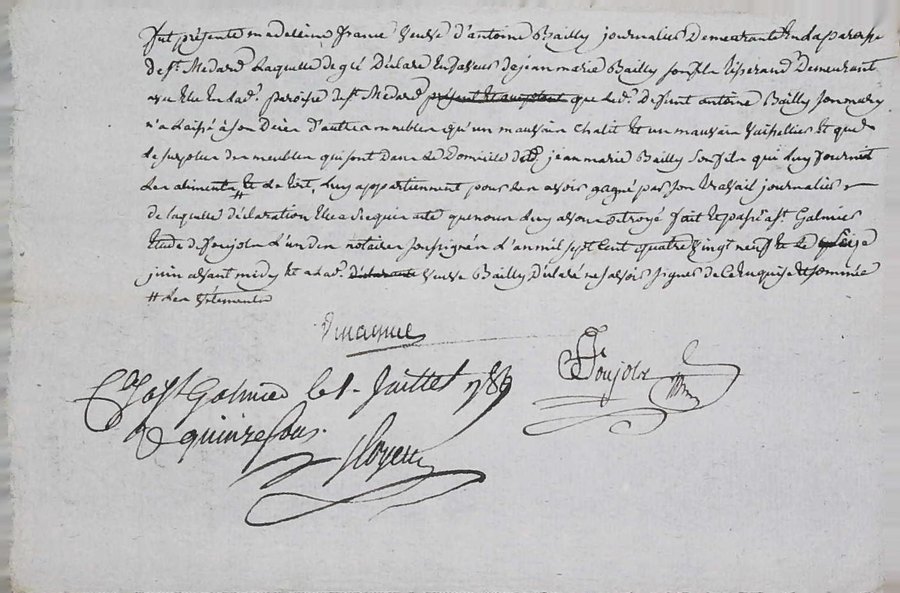 fut présente madeleine france veuve d'antoine Bailly journalier Demeurante En la paroisse
de St. Medard Laquelle de gré Déclare En faveur de jean marie Bailly son fils tisserand Demeurant
avec Elle En lad.e paroisse de St. Medard présent Et acceptant que led.t Deffunt antoine Bailly son mary
n'a laissé à son Décès d'autres meubles qu'un mauvais Chalit Et un mauvais vaisellier Et que
Le surplus des meubles qui sont dans Le Domicile dud. jean marie Bailly son fils qui Luy fournit
Les aliments # Et Le Lict, Luy appartiennent pour Les avoir gagné par son travail journalier
de laquelle déclaration Elle a requis acte que nous Luy avons octroyé fait Et passé à St. Galmier
Etude de foujols L'un des notaires soussignés L'an mil sept Cent quatre vingt neuf Et Le seize
juin avant midy Et a lad.e déclarante veuve Bailly Déclaré ne savoir signer de Ce Enquise Et sommée
# Les vêtements
foujols
Cé à St Galmier le 1. Juillet 1789
R quinze sous.